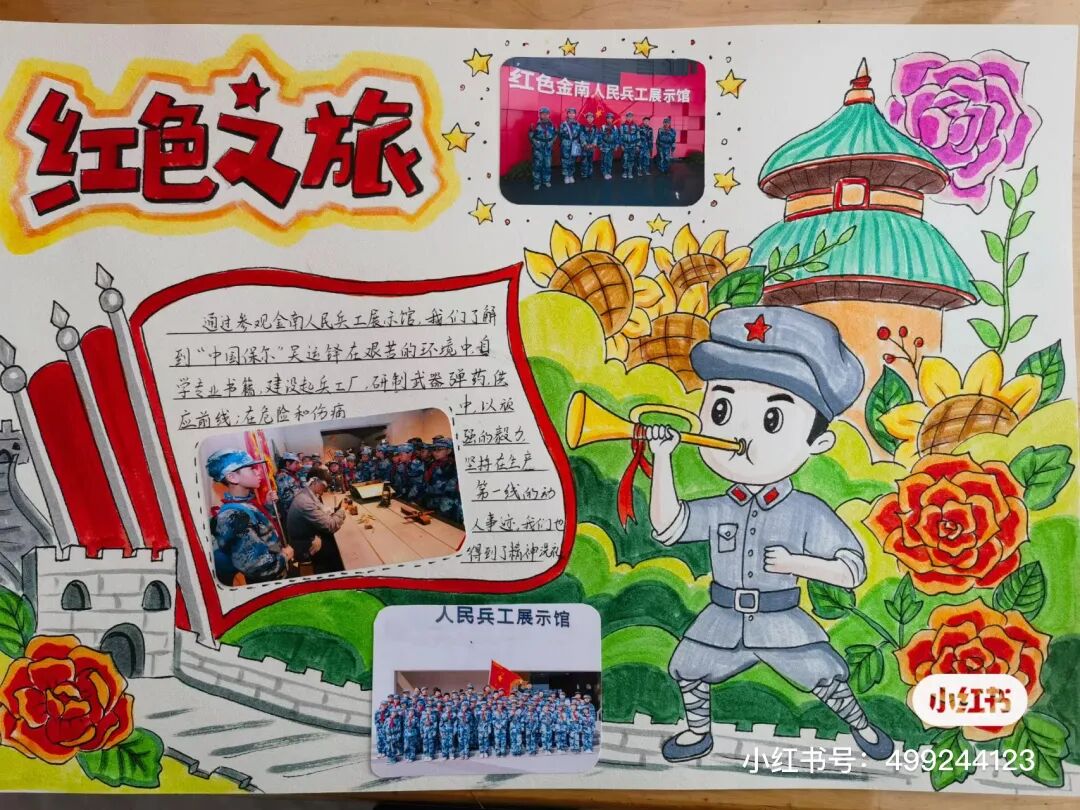 红色之旅
红色金南人民兵工展示馆
通过参观金南人民兵工展示馆,我们了解
到“中国保尔”吴运铎在艰苦的环境中,自
学专业书籍,建设起兵工厂,研制武器弹药,供
应前线;在危险和伤痛
中,以顽
强的毅力
坚持在生产
第一线的动
人事迹,我们也
得到了精神洗礼
人民兵工展示馆
小红书
小红书号:499244123